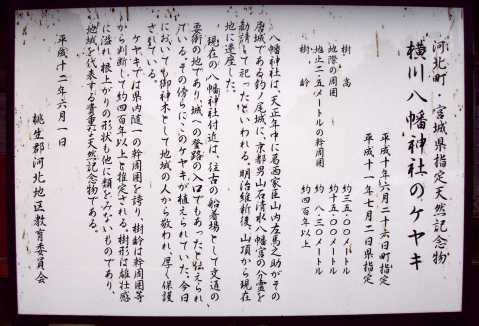 河北町・宮城県指定天然記念物
横川八幡神社のケヤキ
平成十年六月二十六日町指定
平成十一年七月二日県指定
樹　高　約三五・〇〇メートル
地際の周囲　約十五・〇〇メートル
地上二・五メートルの幹周囲　約八・三〇メートル
樹　齢　約四百年以上
八幡神社は、天正年中に葛西家臣山内左馬之助がその
居城である釣ノ尾城に、京都男山石清水八幡宮の分霊を
勧請して祀ったといわれる。明治維新後、山頂から現在
地に遷座した。
現在の八幡神社付近は、往古の船着場として交通の
要衝の地であり、城への登路の入口でもあったと伝えられ
ている。その傍らに、このケヤキが植えられていた。今日
においても御神木として地域の人から敬われ、厚く保護
されている。
ケヤキでは県内随一の幹周囲を誇り、樹齢は幹周囲等
から判断して約四百年以上と推定される。樹形は雄壮感
に溢れ、根上がりの形状も他に類をみないものであり、
地域を代表する貴重な天然記念物である。
平成十二年六月一日
桃生郡河北地区教育委員会